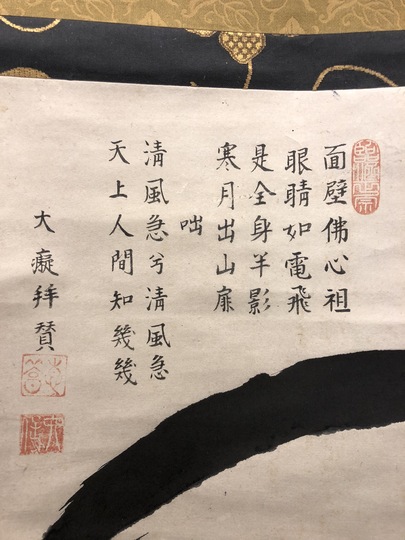 面壁佛心祖
眼睛如電飛
是全身半影
寒月出山扉
咄
清風急兮清風急
天上人間知幾幾
大癡拜贊